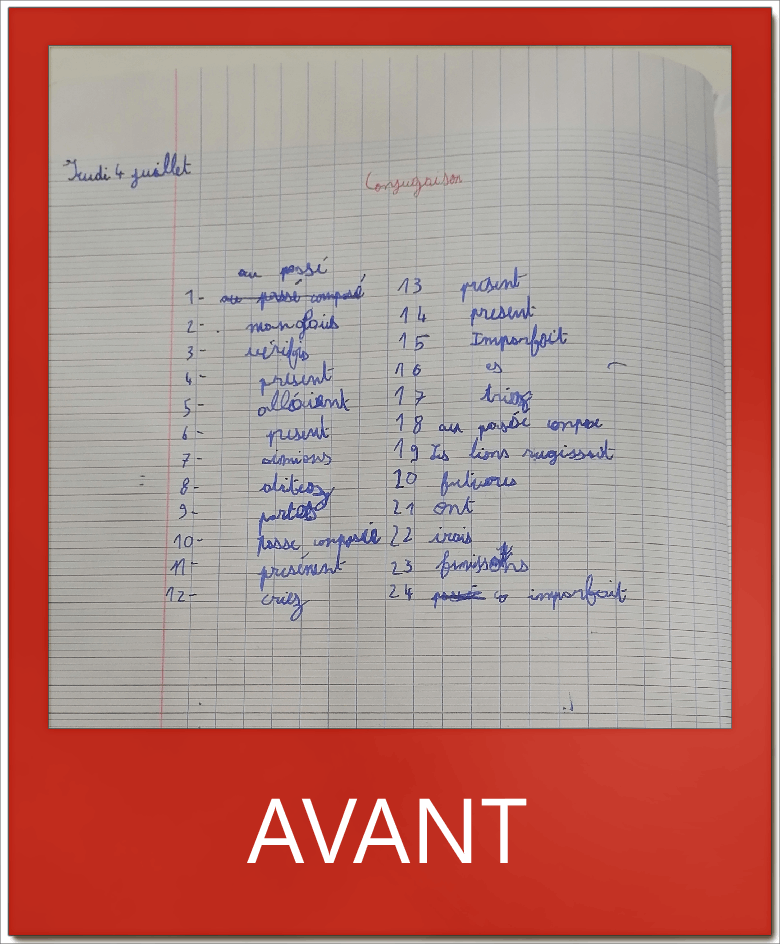 Jeudi 4 juillet
Conjugaison
au passé
1- au passé composé
2- mangais
3- vérifis
4- présent
5- allaient
6- present
7- aimions
8- abitez
9- portes
10- passe composée
11- présènent
12- criez
13 présent
14 present
15 Imparfait
16 es
17 triez
18 au passé compose
19 Les lions rugissait
20
21 ont
22 irais
23 finissons
24 passée imparfait
AVANT